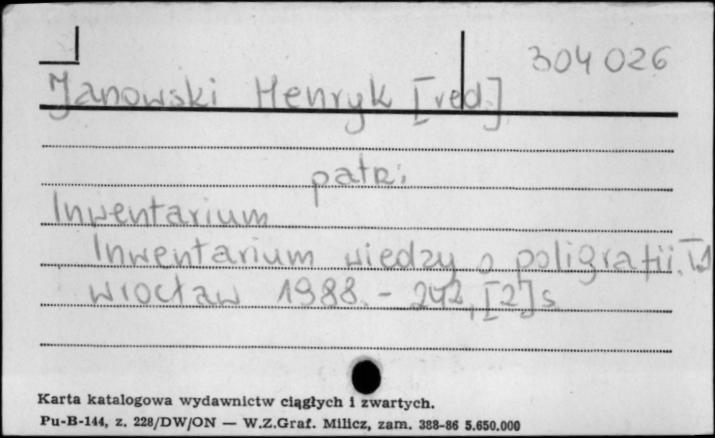 304 026
Janowski Henryk [red.]
patrz:
Inwentarium
Inwentarium wiedzy o poligrafii. T.1
Wrocław 1988. - 242, [2] s.
Karta katalogowa wydawnictw ciągłych i zwartych.
Pu-B-144, z. 228/DW/ON — W.Z.Graf. Milicz, zam. 388-86 5.650.000